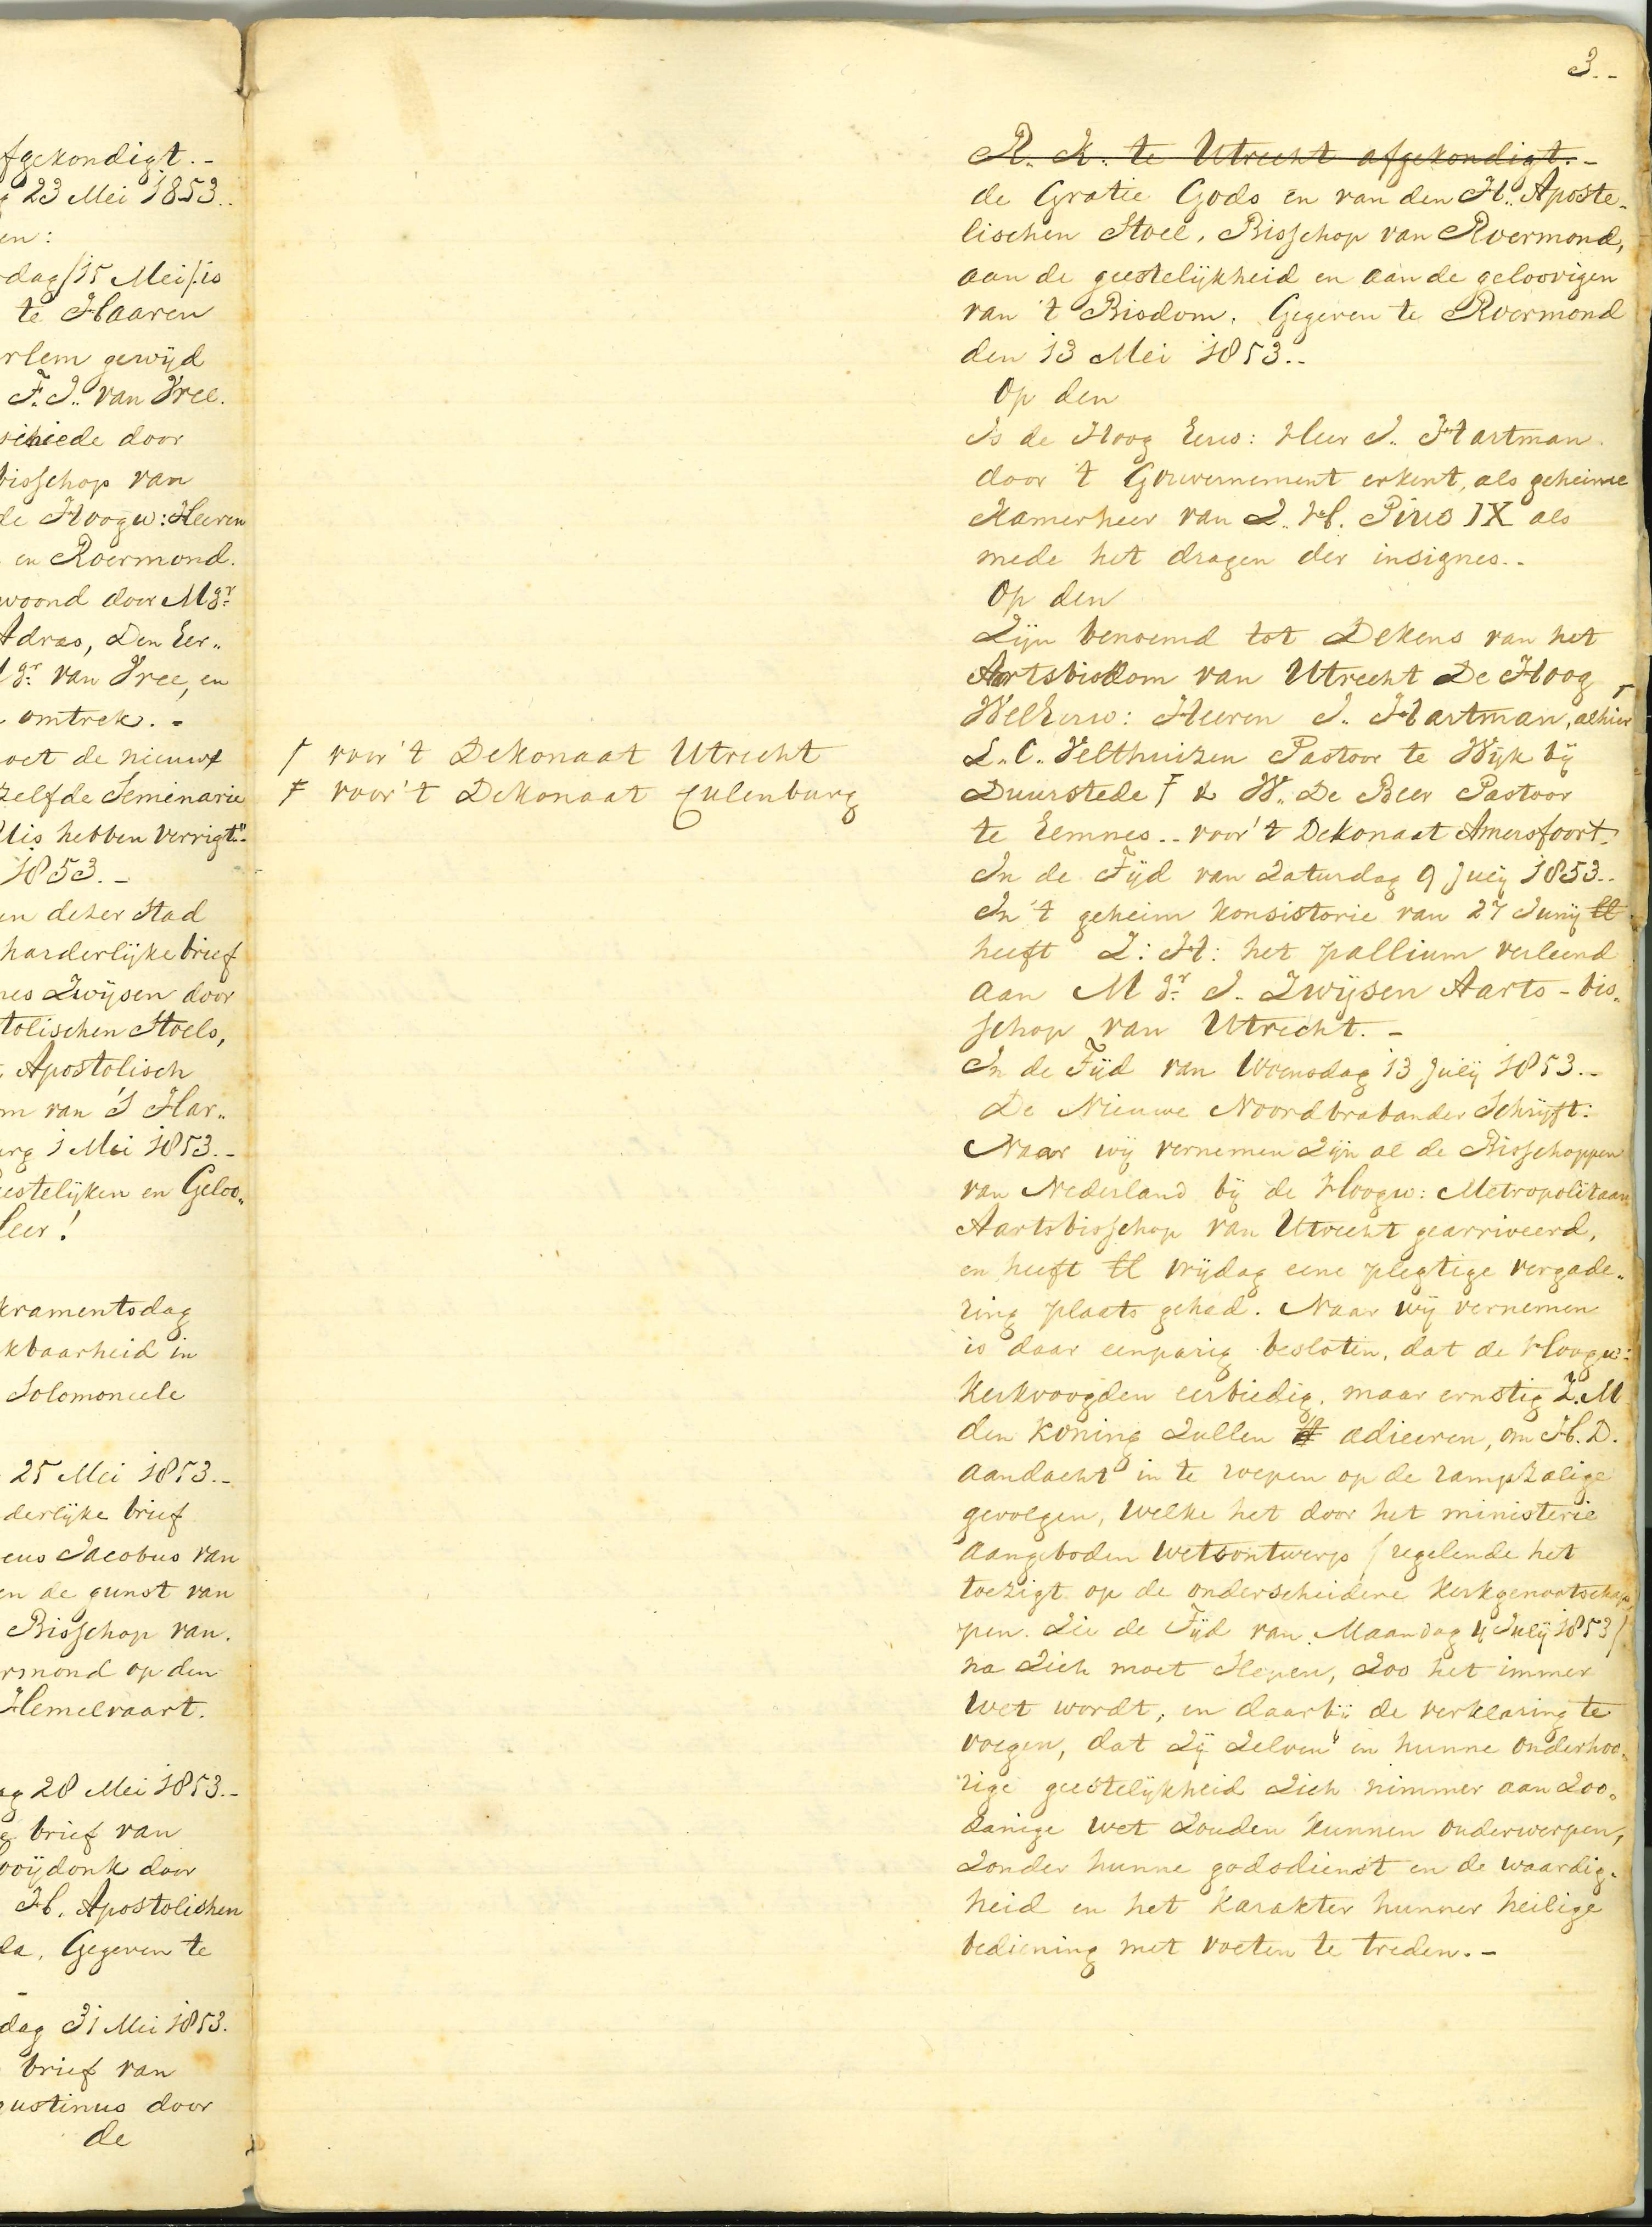 fgekondigt. -
g 23 Mei 1853..
en:
dag /15 Mei/. is
te Haaren
rlem gewijd
F. J. van Vree.
schiede door
bisschop van
de Hoogw: Heeren
en Roermond.
woond door Mgr
Adras, Den Eer„
gr van Vree, en
omtrek. -
oet de nieuwe
zelfde Seminarie
Mis hebben verrigt".
1853. -
en dezer Stad
harderlijke brief
nes Zwijsen door
tolischen Stoels,
Apostolisch
m van 'S Har„
urg 1 Mei 1853. -
eestelijken en Geloo„
Leer!
kramentsdag
kbaarheid in
Solomoneele
25 Mei 1853. -
derlijke brief
eus Jacobus van
en de gunst van
Bisschop van.
rmond op den
Hemelvaart.
ag 28 Mei 1853. -
e brief van
ooijdonk door
H. Apostolischen
da, Gegeven te
dag 31 Mei 1853.
brief van
gustinus door
de
3. -
R. K. te Utrecht afgekondigt. -
de Gratie Gods en van den H. Aposte„
lischen Stoel, Bisschop van Roermond,
aan de geestelijkheid en aan de geloovigen
van 't Bisdom. Gegeven te Roermond
den 13 Mei 1853..
Op den
Is de Hoog Eerw: Heer J. Hartman
door 't Gouvernement erkent, als geheime
Kamerheer van Z. H. Pius IX als
mede het dragen der insignes..
Op den
Zijn benoemd tot Dekens van het
Aartsbisdom van Utrecht De Hoog
WelEerw: Heeren J. Hartman, alhier †
L. C. Velthuizen Pastoor te Wijk bij
Duurstede ‡ & W. De Beer Pastoor
te Eemnes.. voor 't Dekonaat Amersfoort.
† voor 't Dekonaat Utrecht
‡ voor 't Dekonaat Culenburg
In de Tijd van Zaturdag 9 Julij 1853..
In 't geheim konsistorie van 27 Junij ll
heeft Z: H: het pallium verleend
aan Mgr J. Zwijsen Aarts-bis„
schop van Utrecht. -
In de Tijd van Woensdag 13 Julij 1853. -
De Nieuwe Noordbrabander Schrijft:
Naar wij vernemen Zijn al de Bisschoppen
van Nederland bij de Hoogw: Metropolitaan
Aartsbisschop van Utrecht gearriveerd,
en heeft ll vrijdag eene plegtige vergade„
ring plaats gehad. Naar wij vernemen
is daar eenparig besloten, dat de Hoogw:
Kerkvoogden eerbiedig, maar ernstig Z. M
den Koning Zullen adieeren, om H. D.
aandacht in te roepen op de rampzalige
gevolgen, welke het door het ministerie
aangeboden wetsontwerp / regelende het
toezigt op de onderscheidene Kerkgenootschap„
pen. Zie de Tijd van Maandag 4 Julij 1853 /
na Zich moet Slepen, Zoo het immer
wet wordt, en daarbij de verklaring te
voegen, dat Zij Zelven en hunne onderhoo„
rige geestelijkheid Zich nimmer aan Zoo„
danige wet Zouden kunnen onderwerpen,
Zonder hunne godsdienst en de waardig„
heid en het karakter hunner heilige
bediening met voeten te treden. -